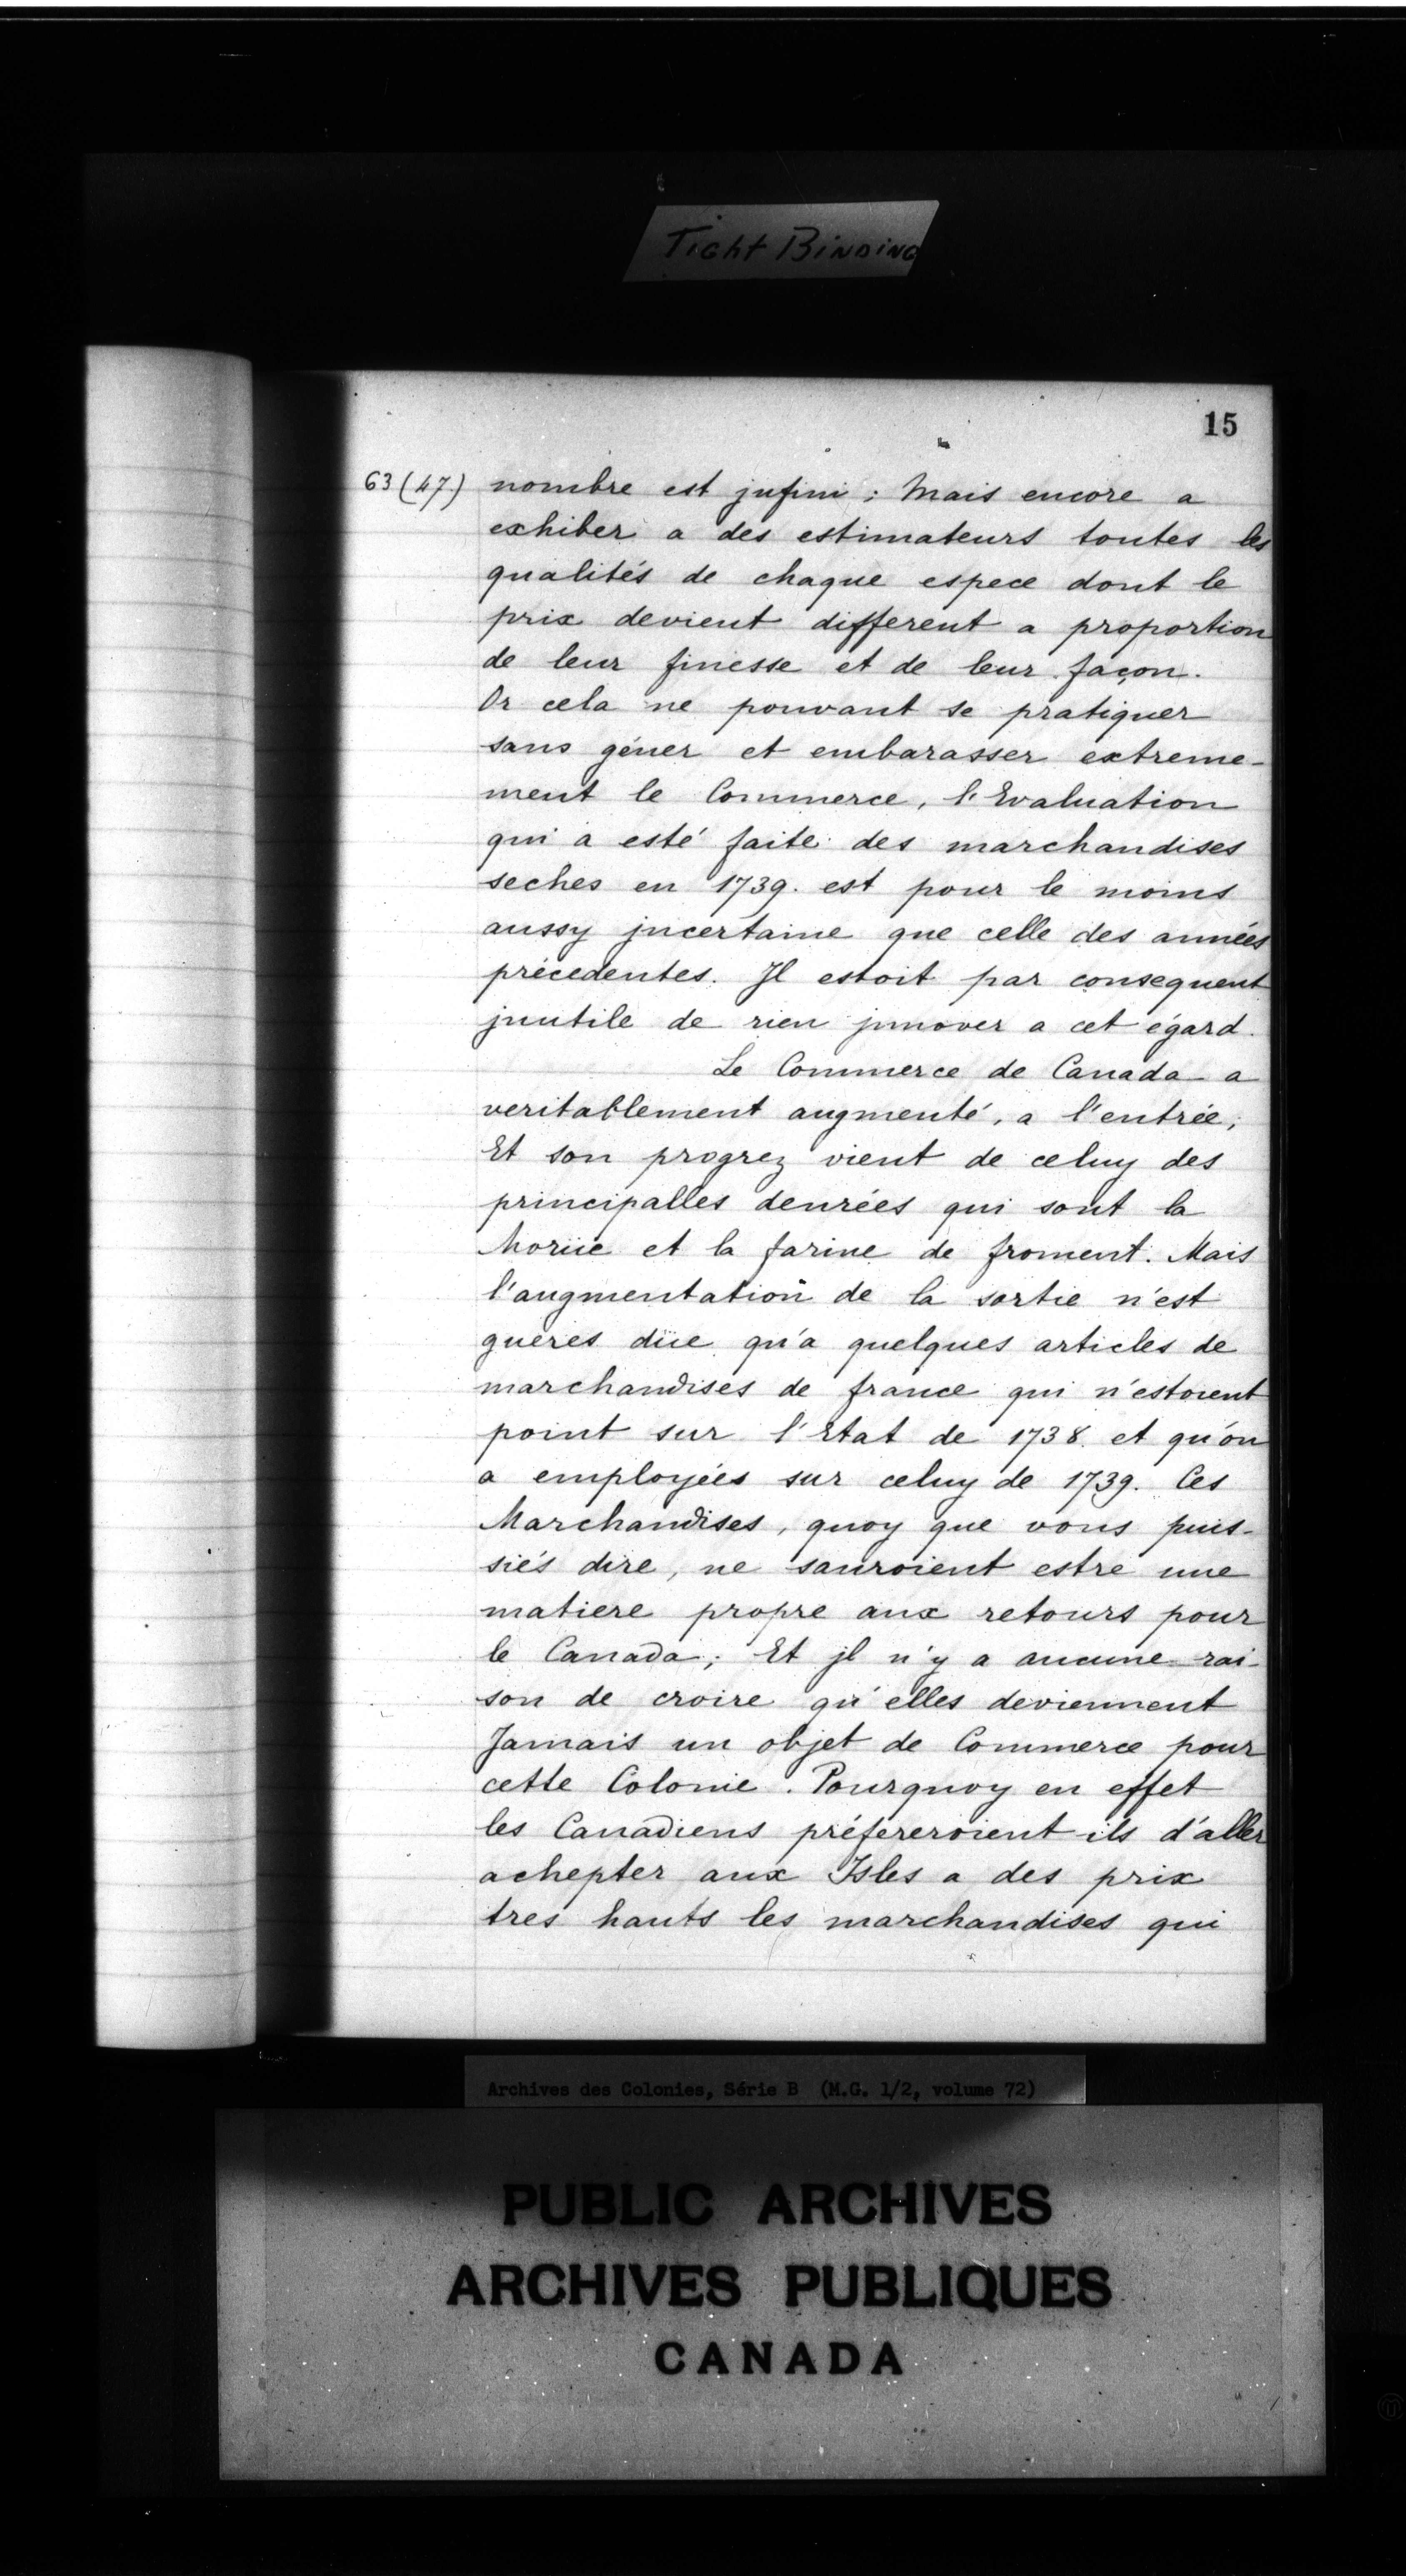 Tight Binding
15
63 (47.) nombre est jnfini ; Mais encore a
exhiber a des estimateurs toutes les
qualités de chaque espece dont le
prix devient different a proportion
de leur finesse et de leur façon.
Or cela ne pouvant se pratiquer
sans géner et embarasser extreme-
ment le Commerce, l'Evaluation
qui a esté faite des marchandises
seches en 1739. est pour le moins
aussy jncertaine que celle des années
précedentes. Jl estoit par consequent
jnutile de rien jnnover a cet égard.
Le Commerce de Canada a
veritablement augmenté, a l'entrée,
Et son progrez vient de celuy des
principalles denrées qui sont la
Moriie et la farine de froment. Mais
l'augmentation de la sortie n'est
gueres düe qu'a quelques articles de
marchandises de france qui n'estoient
point sur l'Etat de 1738. et qu'on
a employées sur celuy de 1739. Ces
Marchandises, quoy que vous puis-
siés dire, ne sauroient estre une
matiere propre aux retours pour
le Canada ; Et jl n'y a aucune rai-
son de croire qu'elles deviennent
Jamais un objet de Commerce pour
cette Colonie. Pourquoy en effet
les Canadiens préfereroient-ils d'aller
achepter aux Isles a des prix
tres hauts les marchandises qui
Archives des Colonies, Série B (M.G. 1/2, volume 72)
PUBLIC ARCHIVES
ARCHIVES PUBLIQUES
CANADA